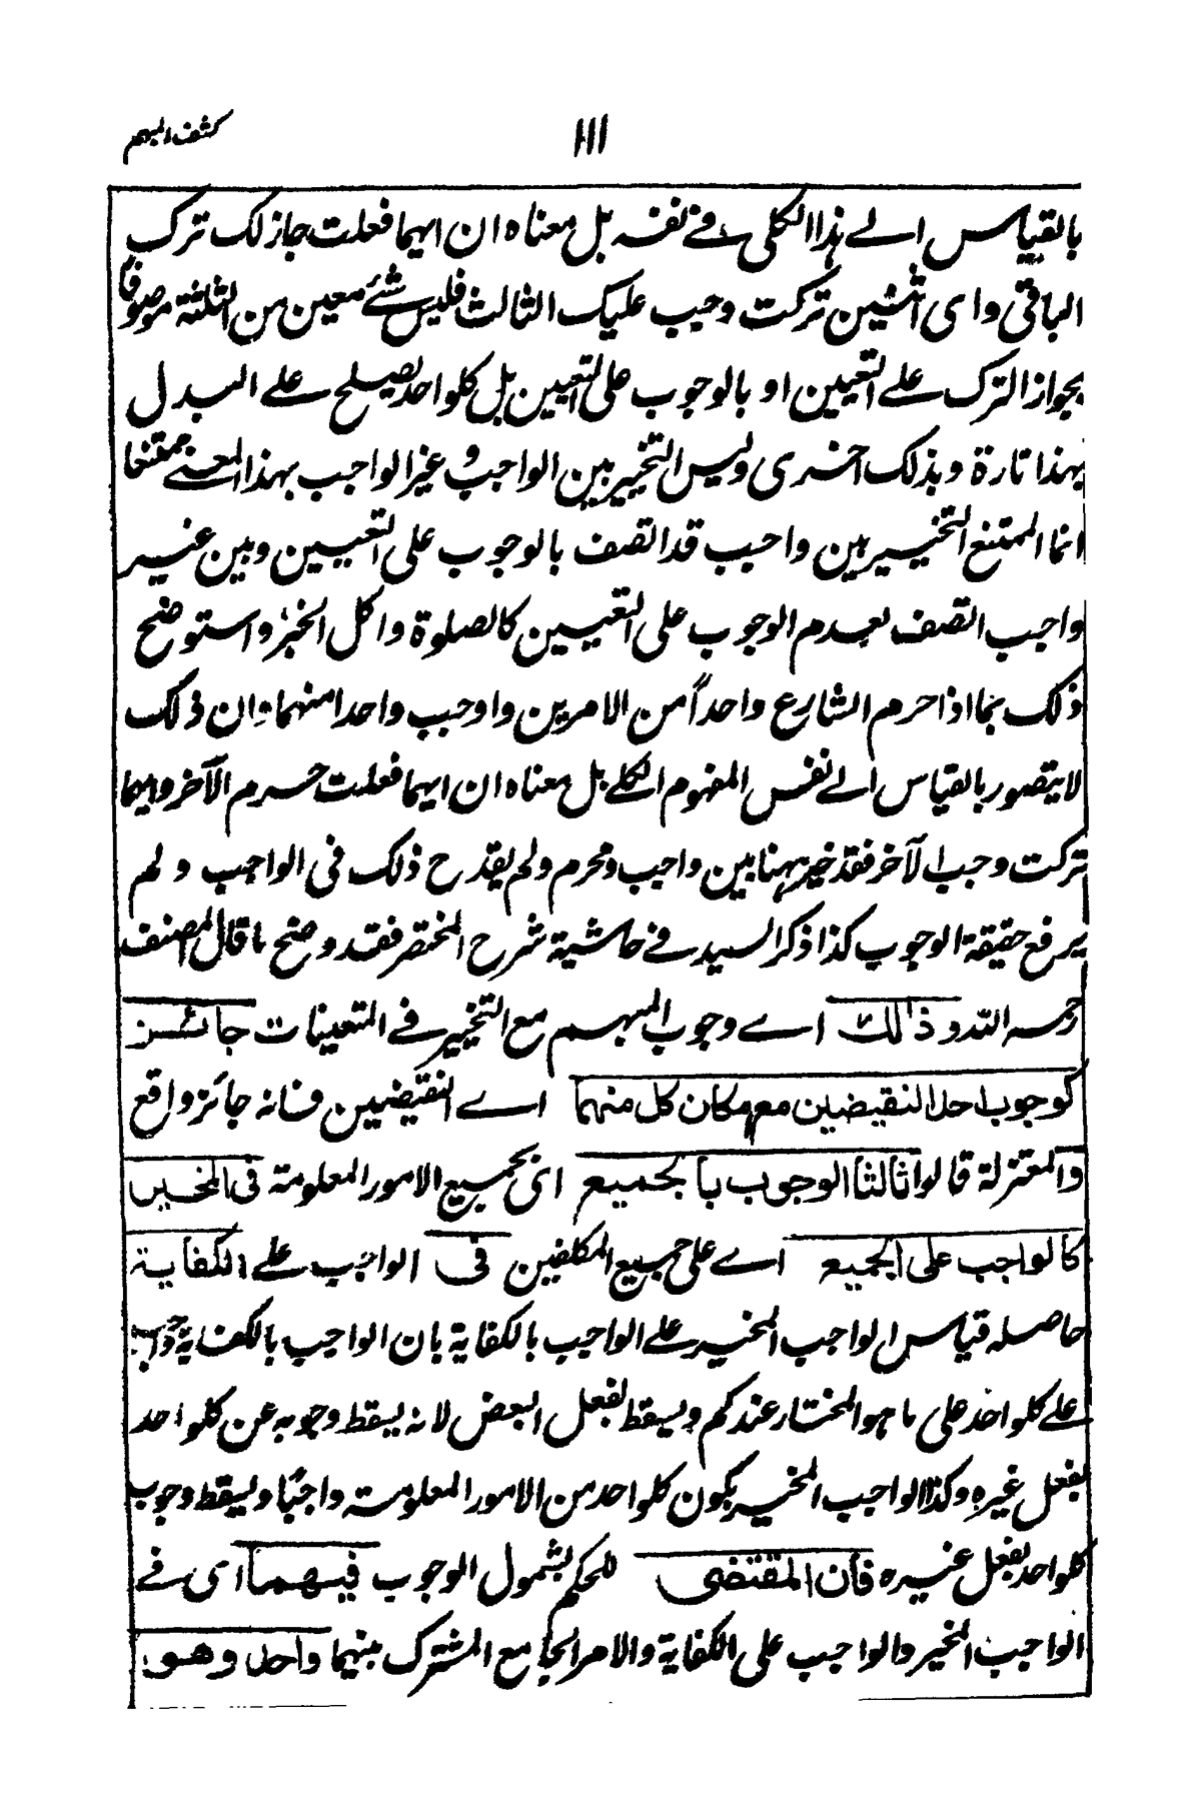 كشف المبهم
١١١
بالقياس الى هذا الكلى فى نفسه بل معناه ان ايهما فعلت جاز لك ترك
الباقى واى اثنين تركت وجب عليك الثالث فليس شئ معين من الثلثة موصوفا
بجواز الترك على التعيين او بالوجوب على التعيين بل كلواحد يصلح على البدل
بهذا تارة وبذلك اخرى وليس التخيير بين الواجب وغير الواجب بهذا المعنى ممتنعا
انما الممتنع التخيير بين واجب قد اتصف بالوجوب على التعيين وبين غير
واجب اتصف بعدم الوجوب على التعيين كالصلوة واكل الخبز واستوضح
ذلك بما اذا حرم الشارع واحداً من الامرين واوجب واحدا منهما وان ذلك
لا يتصور بالقياس الى نفس المفهوم الكلى بل معناه ان ايهما فعلت حرم الآخر وايهما
تركت وجب الآخر فقد خير بهنا بين واجب ومحرم ولم يقدح ذلك فى الواجب ولم
يرفع حقيقة الوجوب كذا ذكر السيد فى حاشية شرح المختصر فقد وضح ما قال المصنف
رحمه الله وذالك اى وجوب المبهم مع التخيير فى المتعينات جائز
كوجوب احد النقيضين مع امكان كل منهما اى النقيضين فانه جائز واقع
والمعتزلة قالوا ثالثا الوجوب بالجميع اى بجميع الامور المعلومة فى المخير
كالواجب على الجميع اى على جميع المكلفين فى الواجب على الكفاية
حاصله قياس الواجب المخير على الواجب بالكفاية بان الواجب بالكفاية واجب
على كلواحد على ما هو المختار عندكم ويسقط بفعل البعض لانه يسقط وجوبه عن كلواحد
بفعل غيره وكذا الواجب المخير يكون كلواحد من الامور المعلومة واجبًا ويسقط وجوب
كلواحد بفعل غيره فان المقتضى للحكم بشمول الوجوب فيهما اى فى
الواجب المخير والواجب على الكفاية والامر الجامع المشترك بينهما واحد وهو